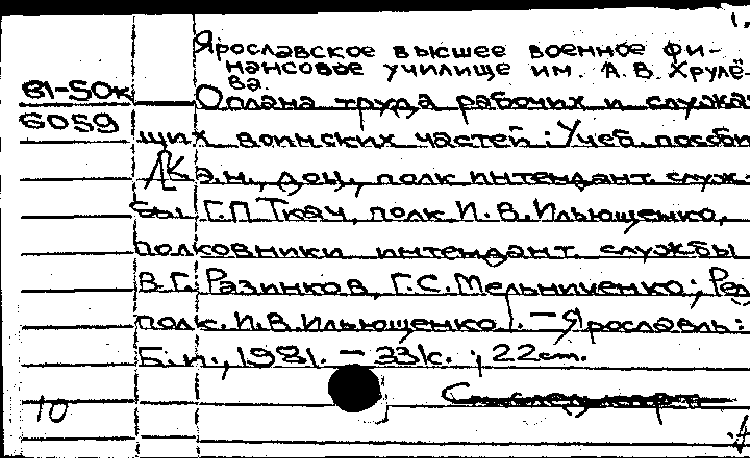 1.
Ярославское высшее военное фи-
нансовое училище им. А.В. Хрулё-
ва.
81-50к Оплата труда рабочих и служа-
6059
щих воинских частей : Учеб. пособи
/К.э.н., доц., полк интендант. служ-
бы Г.П. Ткач, полк. И.В. Ильющенко,
полковники интендант. службы
В.Г. Разинков, Г.С. Мельниченко; Ред.
полк. И.В. Ильющенко/. — Ярославль:
Б.и., 1981. — 331с. ; 22см.
10